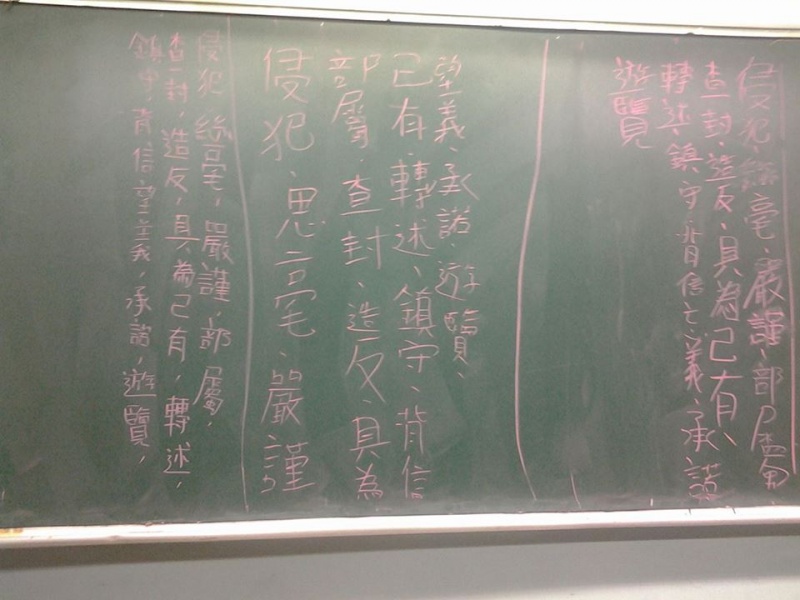 侵犯、絲毫、嚴謹、部屬
查封、造反、具為己有、
轉述、鎮守、背信亡義、承諾
遊覽
侵犯、思毫、嚴謹
部屬、查封、造反、具為
己有、轉述、鎮守、背信
望義、承諾、遊覽、
侵犯,絲毫,嚴謹,部屬,
查封,造反,具為己有,轉述,
鎮守,背信望義,承諾,遊覽,